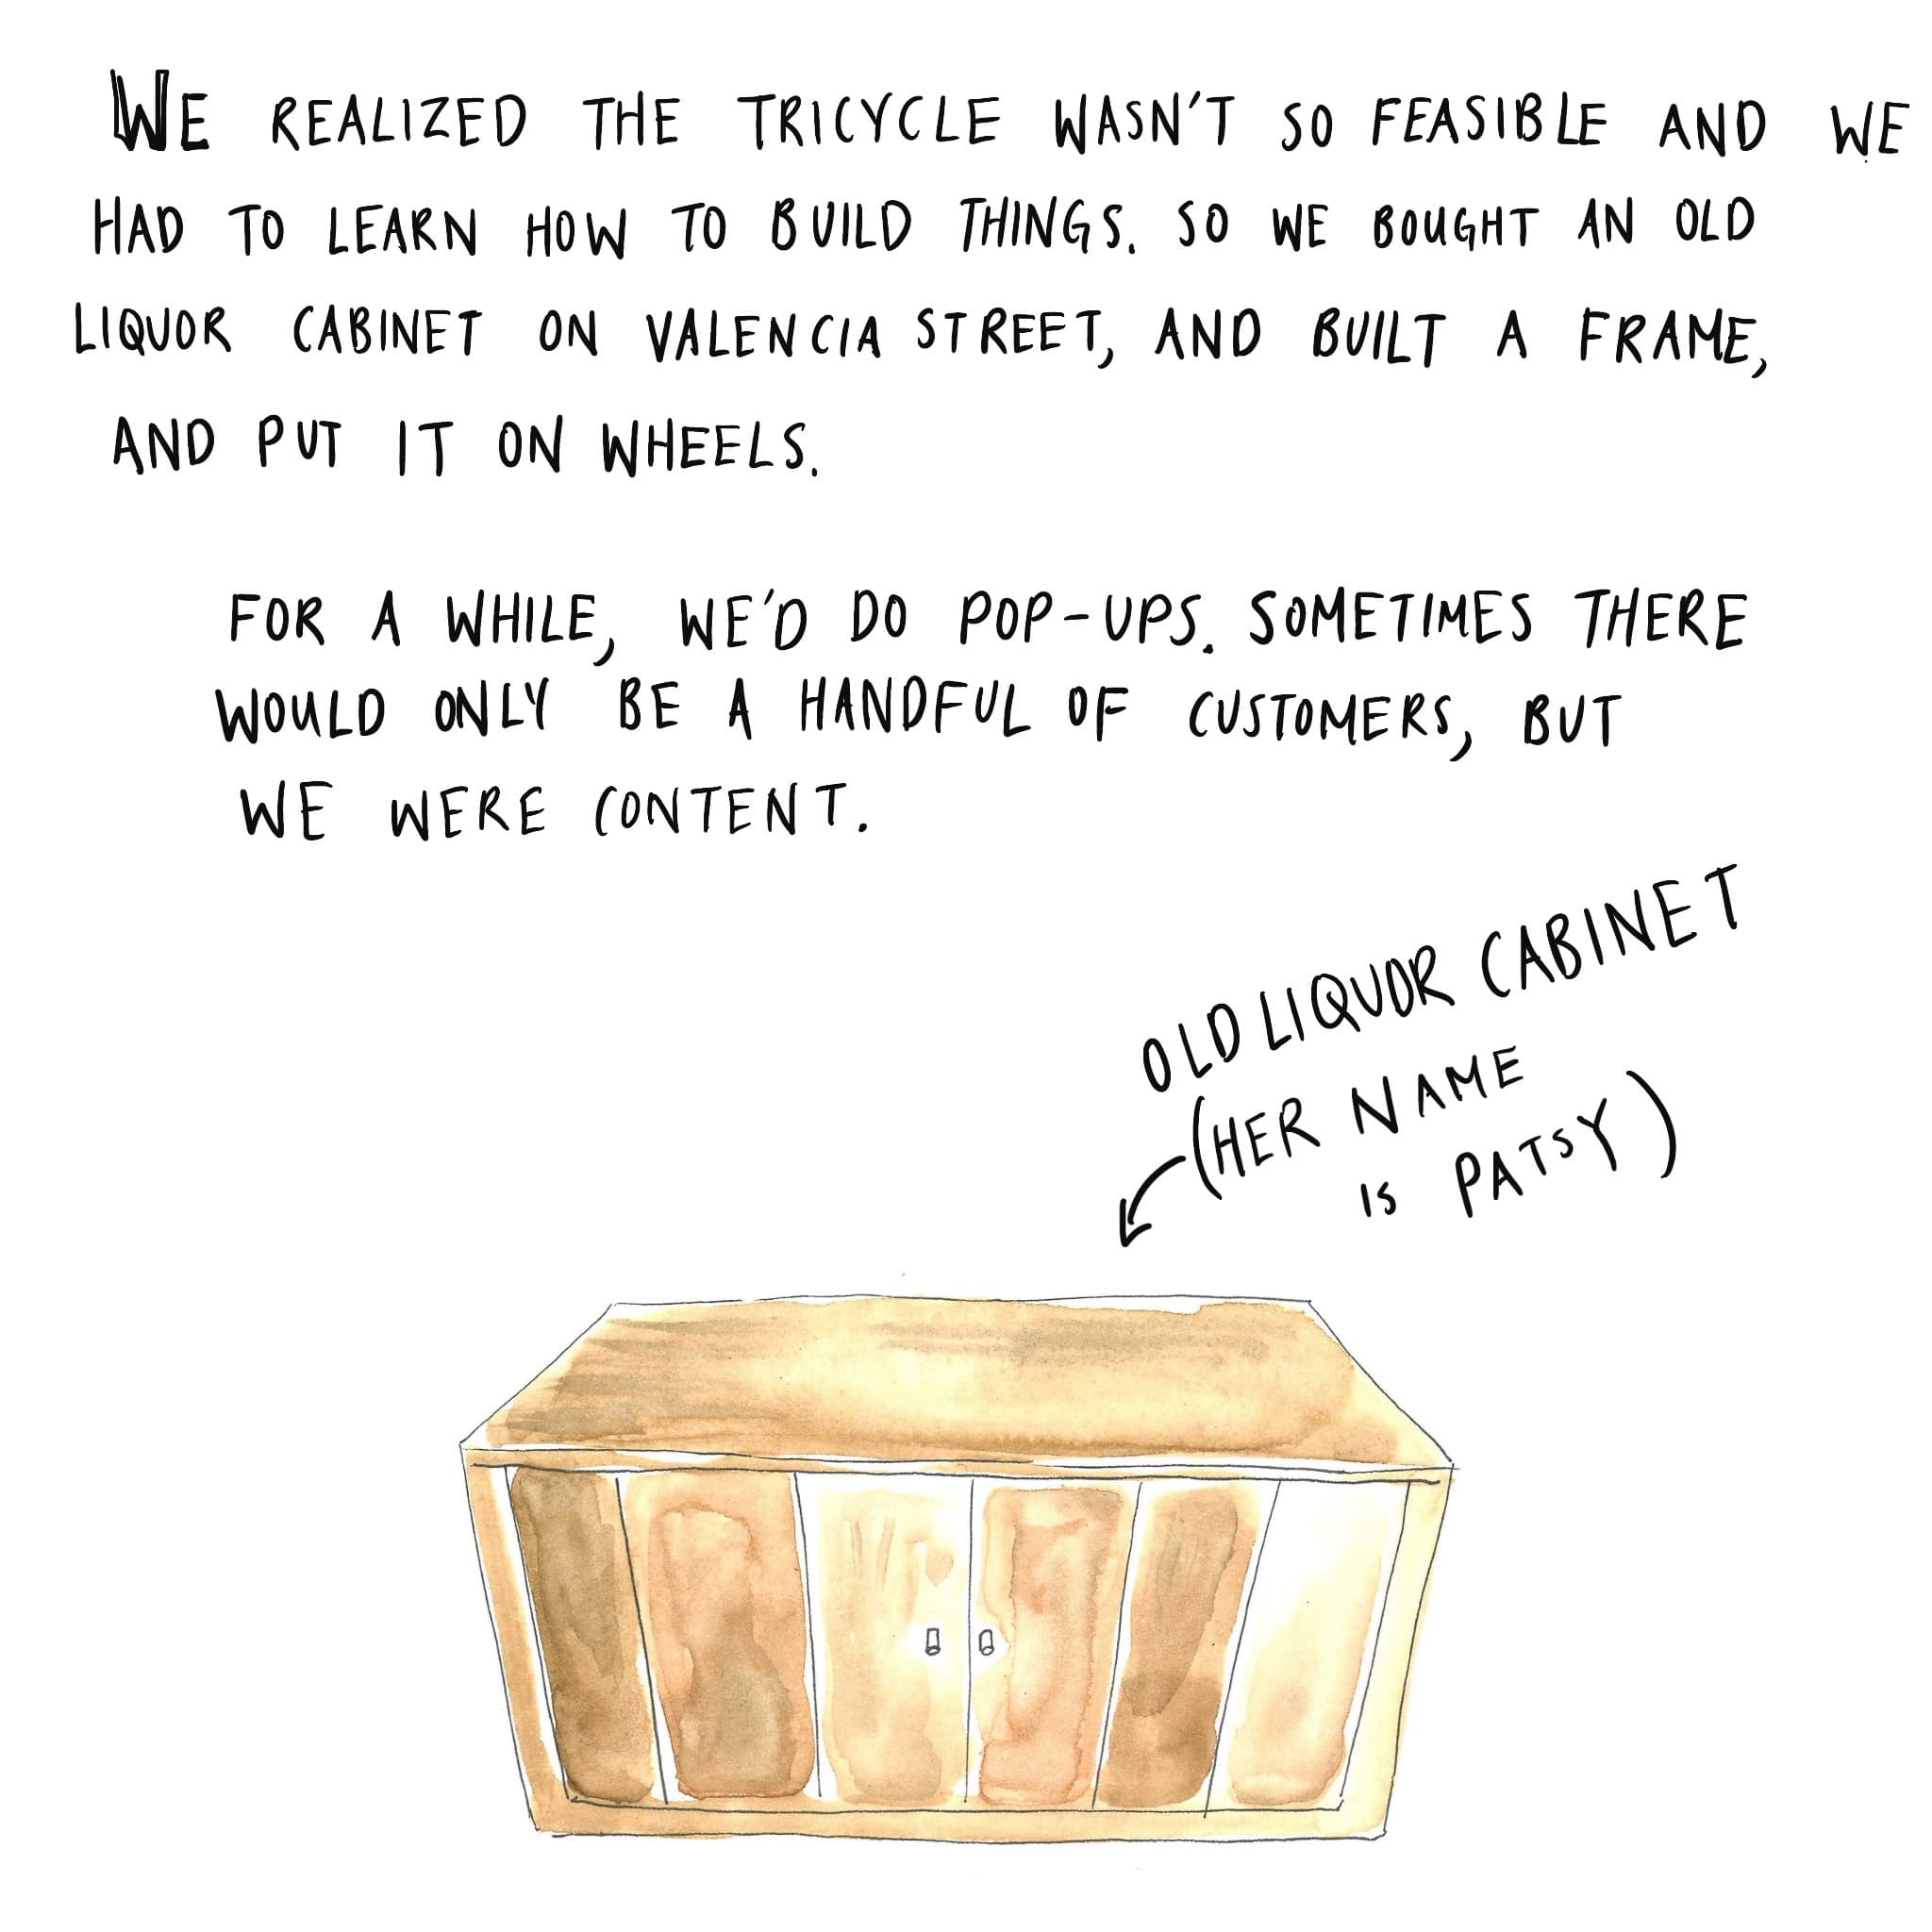 WE REALIZED THE TRICYCLE WASN'T SO FEASIBLE AND WE
HAD TO LEARN HOW TO BUILD THINGS. SO WE BOUGHT AN OLD
LIQUOR CABINET ON VALENCIA STREET, AND BUILT A FRAME,
AND PUT IT ON WHEELS.
FOR A WHILE, WE'D DO POP-UPS. SOMETIMES THERE
WOULD ONLY BE A HANDFUL OF CUSTOMERS, BUT
WE WERE CONTENT.
OLD LIQUOR CABINET
(HER NAME
IS PATSY)